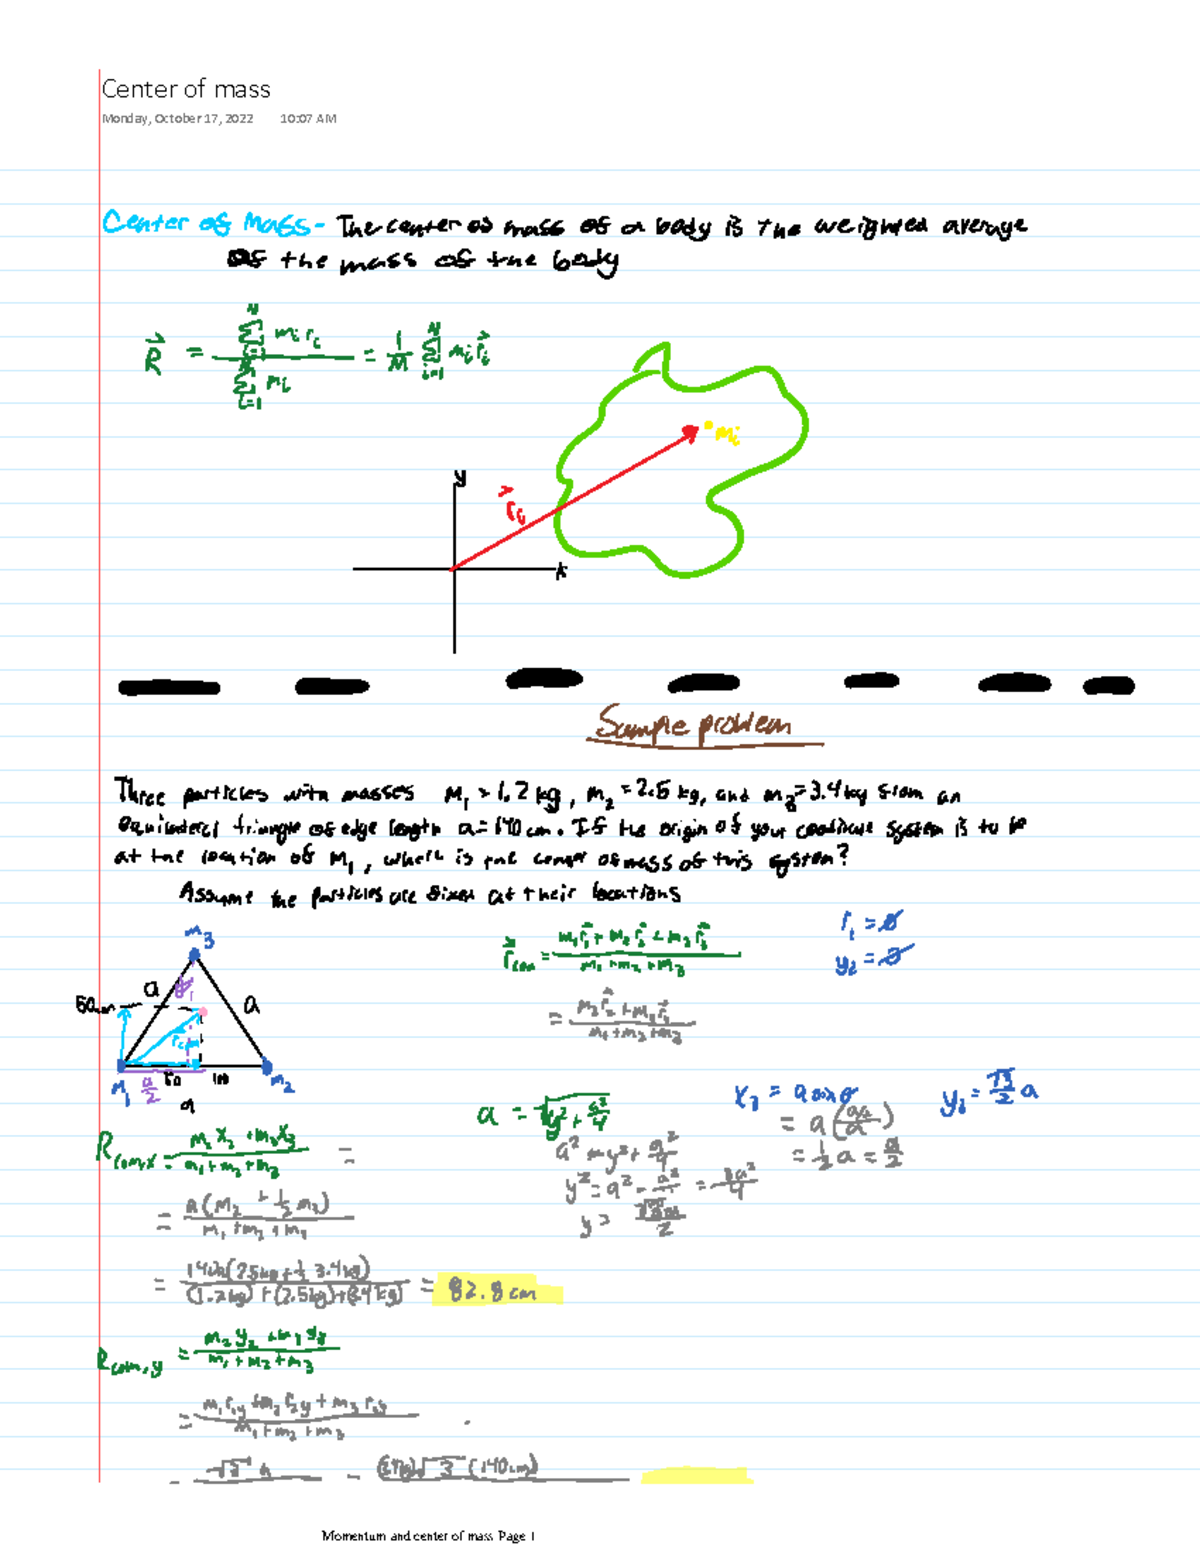 Center of mass
Monday, October 17, 2022 10:07 AM
Center of Mass - The center of mass of a body is the weighted average
of the mass of the body
R⃗ = Σ^N_{i=1} mᵢ rᵢ / Σ^N_{i=1} mᵢ = 1/M Σ^N_{i=1} mᵢ r⃗ᵢ
mᵢ
y
r⃗ᵢ
x
Sample problem
Three particles with masses M₁ = 1.2 kg, m₂ = 2.5 kg, and m₃ = 3.4 kg form an
equilateral triangle of edge length a = 140 cm. If the origin of your coordinate system is to be
at the location of M₁, where is the center of mass of this system?
Assume the particles are fixed at their locations
m₃
a
a
50cm
r_com
M₁
a/2
50
100
m₂
a
r⃗_com = (m₁r⃗₁ + m₂r⃗₂ + m₃r⃗₃) / (m₁ + m₂ + m₃)
= (m₂r⃗₂ + m₃r⃗₃) / (m₁ + m₂ + m₃)
r₁ = 0
y₂ = 0
a = √(y² + a²/4)
a² = y² + a²/4
y² = a² - a²/4 = 3a²/4
y = √3a/2
x₃ = a cos θ
= a
= ½ a = a/2
y₃ = √3/2 a
R_com,x = (m₂x₂ + m₃x₃) / (m₁ + m₂ + m₃) =
= a(m₂ + ½ m₃) / (m₁ + m₂ + m₃)
= 140cm(2.5kg + ½ 3.4kg) / ((1.2kg) + (2.5kg) + (3.4kg)) = 82.8 cm
R_com,y = (m₂y₂ + m₃y₃) / (m₁ + m₂ + m₃)
= (m₁r₁y + m₂r₂y + m₃r₃y) / (m₁ + m₂ + m₃)
= √3 a = (3.4kg)√3 (140cm)
Momentum and center of mass Page 1